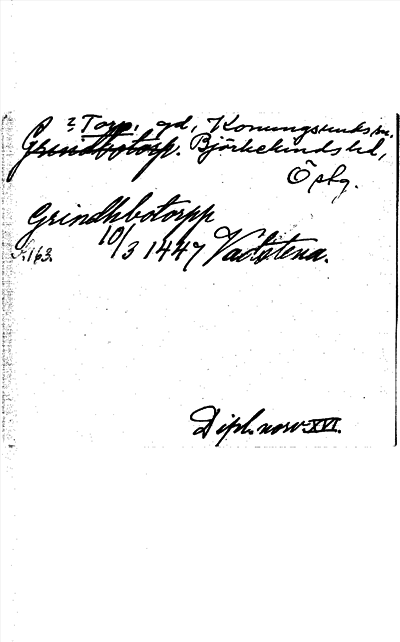 ? Torp. gd, Konungsunds sn.
Grindbotorp. Björkekinds hd,
Östg.
Grindhbotorpp
10/3 1447 Vadstena.
s. 163.
Dipl. norv XVI.